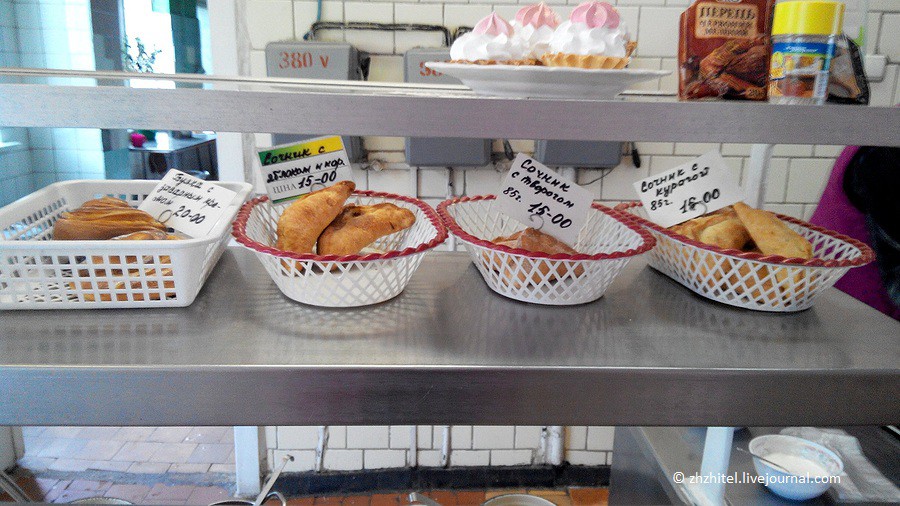 380 V
ПЕРЕЦЬ
Булка с
20-00
Сочник с
яблоком и кор.
ЦІНА 15-00
Сочник
с творогом
85г. 15-00
Сочник с
курагой
85г. 18-00
© zhzhitel.livejournal.com